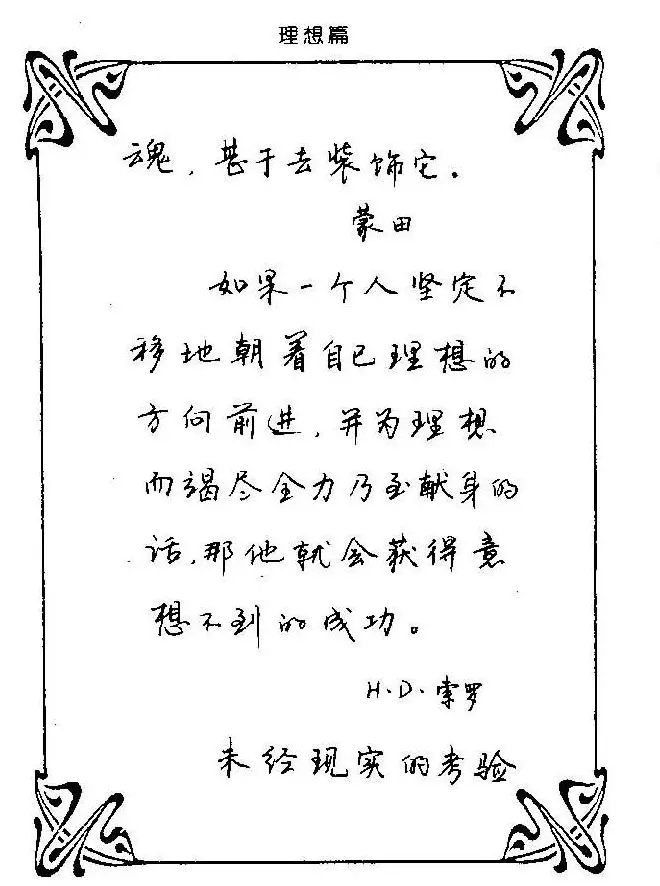 理想篇
魂，甚于去装饰它。
蒙田
如果一个人坚定不
移地朝着自己理想的
方向前进，并为理想
而竭尽全力乃至献身的
话，那他就会获得意
想不到的成功。
H·D·索罗
未经现实的考验